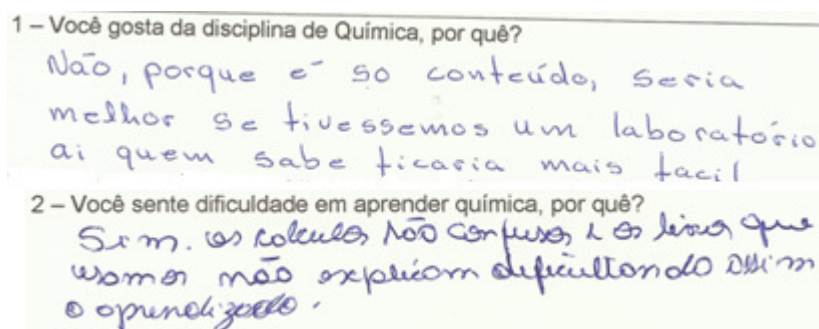 1 – Você gosta da disciplina de Química, por quê?
Não, porque é so conteúdo, seria
melhor se tivessemos um laboratório
ai quem sabe ficaria mais facil
2 – Você sente dificuldade em aprender química, por quê?
Sim. os calculos são confusos e os livros que
usamos não explicam dificultando assim
o aprendizado.